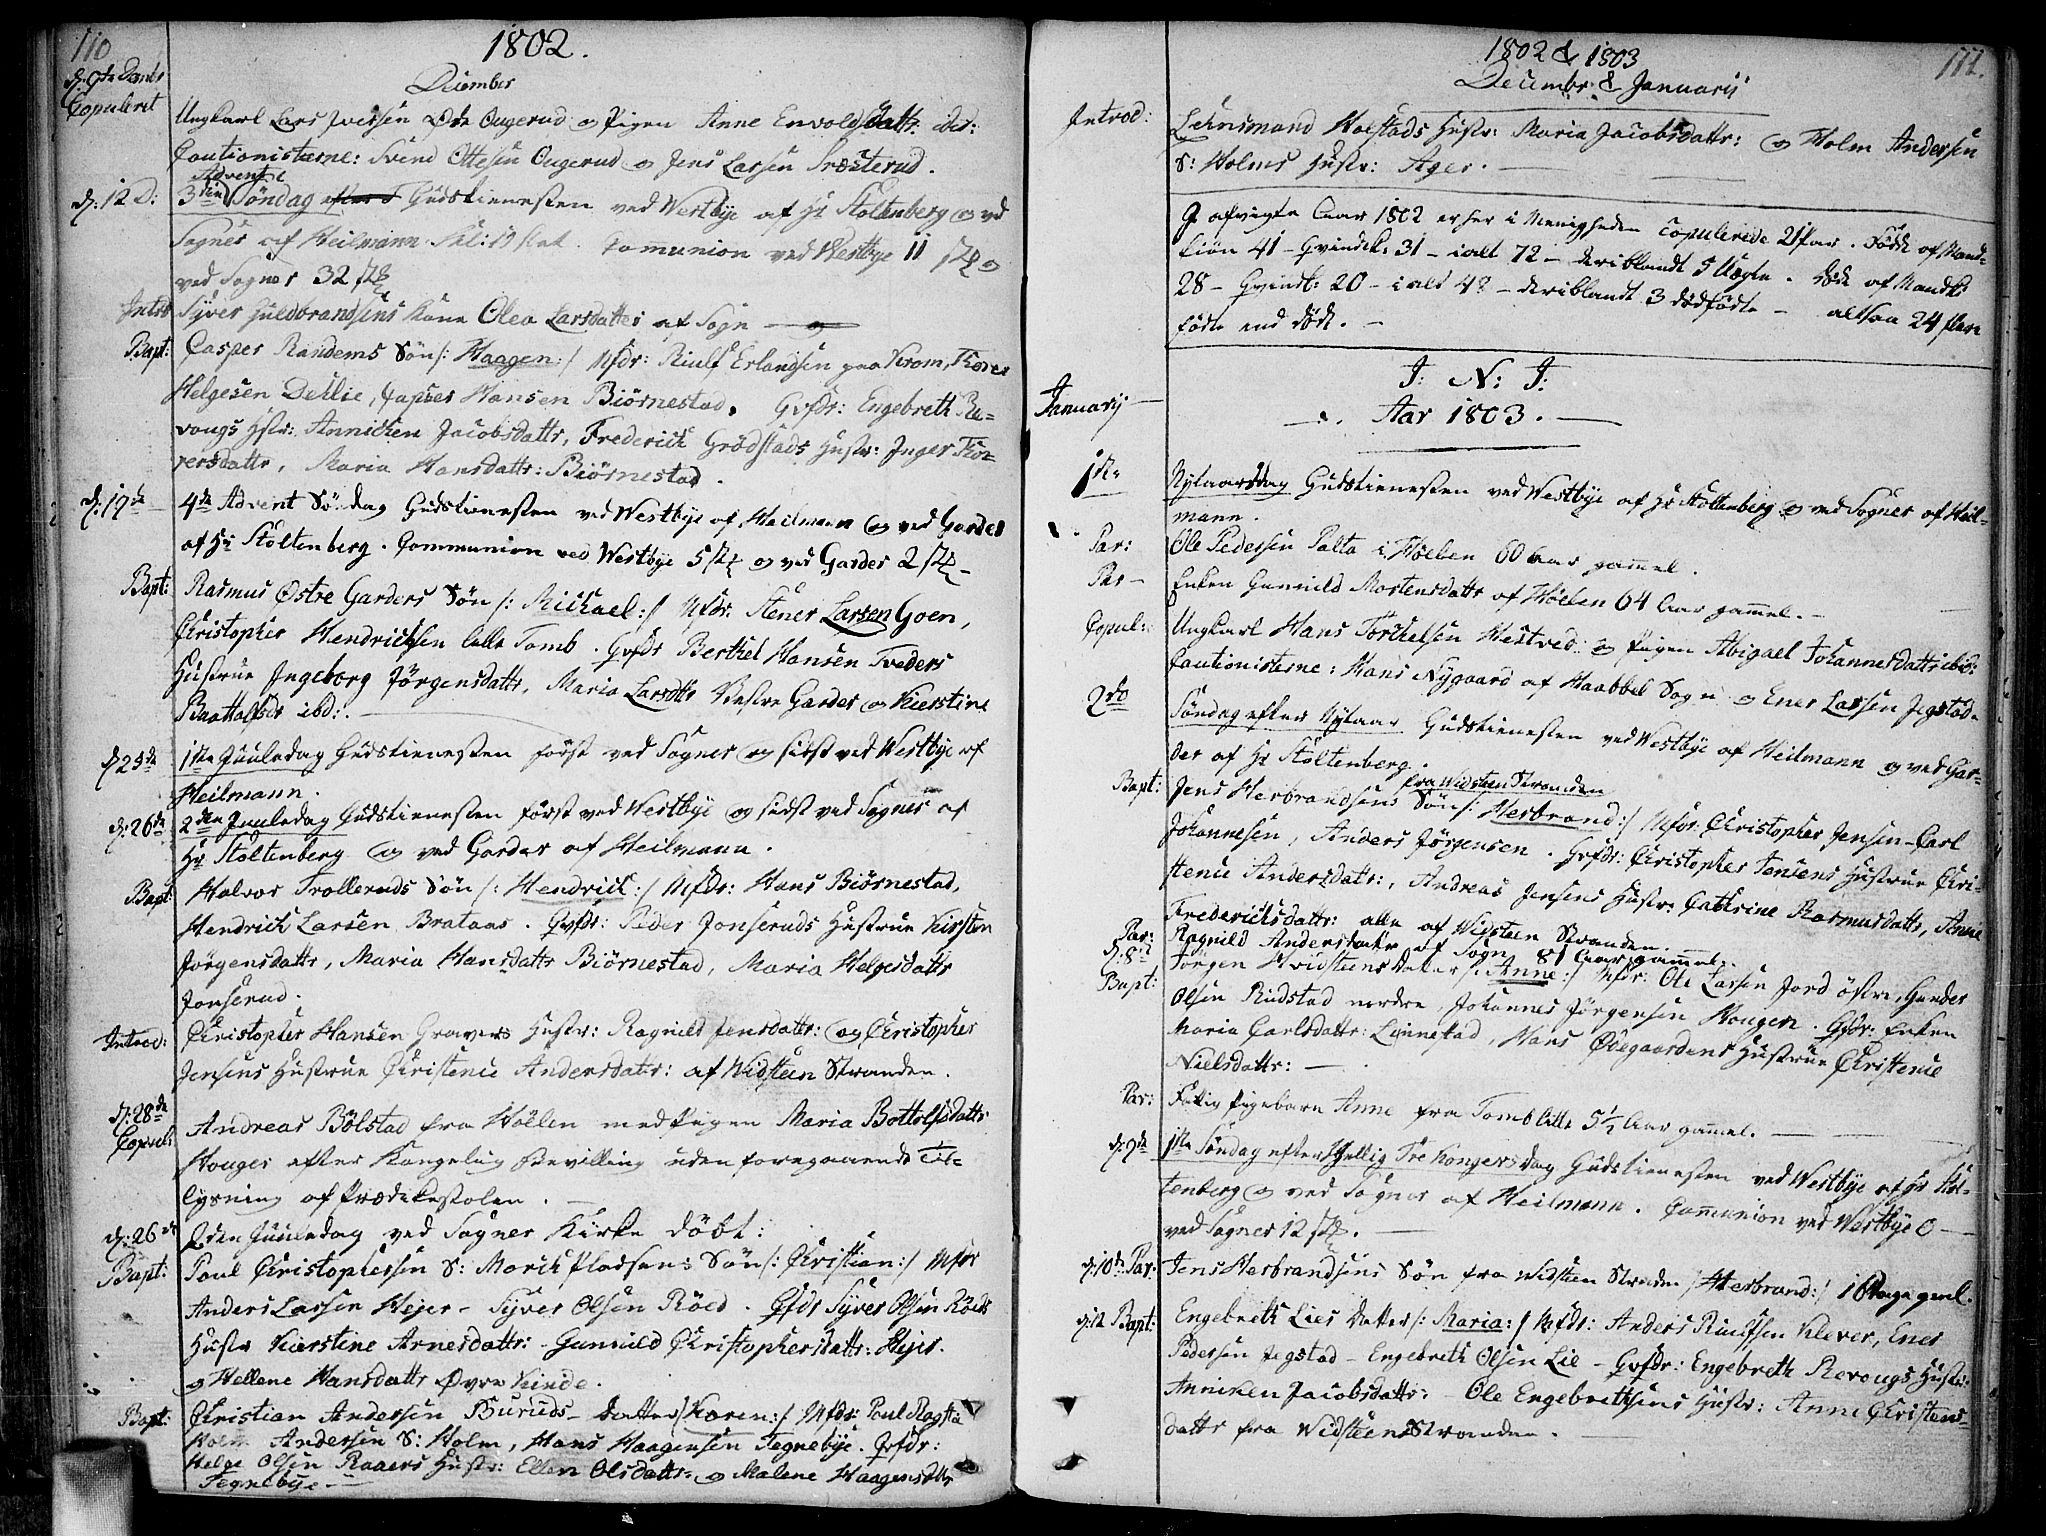 110
1802.
December
d: 9de Decbr
Copuleret
Ungkarl Lars Iversen Øvre Ougerud og Pigen Anne Envoldsdattr: ibd:
Cautionisterne: Svend Ottesen Ougerud og Jens Larsen Træsterud.
Advent
d: 12 D: 3die Søndag Gudstienesten ved Westbye af Hr Stoltenberg og ved
Sogner af Heilmann. Communion ved Westbye 11 og
ved Sogner 32
Introd Syver Guldbrandsens Kone Olea Larsdatter af Sogn
Bapt: Casper Randems Søn /: Haagen :/ Mfdr: Riulf Erlandsen paa Krom, Thorer
Helgesen Dehlie, Casper Hansen Biørnestad. Qvfdr: Engebreth Re-
vougs Hstr: Annichen Jacobsdattr, Frederich Grødstads Hustr: Inger Thor-
versdattr, Maria Hansdattr: Biørnestad.
d: 19de 4de Advent Søndag Gudstienesten ved Westbye af Heilmann og ved Garder
af Hr Stoltenberg. Communion ved Westbye 5 og ved Garder 2
Bapt: Rasmus Østre Garders Søn /: Michael :/ Mfdr: Stener Larsen Goen,
Christopher Hendrichsen lille Tomb. Qvfdr Berthel Hansen Tveders
Hustrue Ingeborg Jørgensdattr, Maria Larsdttr Vestre Garder og Kierstine
Baattolfsdr ibd:.
d 25de 1ste Juuledag Gudstienesten først ved Sogner og sidst ved Westbye af
Heilmann.
d: 26de 2den Juuledag Gudstienesten først ved Westbye og sidst ved Sogner af
Hr Stoltenberg og ved Garder af Heilmann.
Bapt: Halvor Trolleruds Søn /: Hendrich :/ Mfdr: Hans Biørnestad,
Hendrich Larsen Brataas. Qvfdr: Peder Jonseruds Hustrue Kirsten
Jørgensdattr, Maria Hansdattr Biørnestad, Maria Helgesdattr
Jonserud.
Introd: Christopher Hansen Gravers Hustr: Ragnild Jensdattr: og Christopher
Jensens Hustrue Christense Andersdatr: af Widsteen Stranden.
d: 28de
Copul: Andreas Bölstad fra Höllen med Pigen Maria Bottolfsdattr
Houger efter Kongelig Bevilling uden foregaaende Til-
lysning af Prædikestolen.
d: 26de 2den Juuledag ved Sogner Kirke döbt:
Bapt: Poul Christophersen S: Mork Pladsen: Søn /: Christian :/ Mfdr
Anders Larsen Hejer - Syver Olsen Röed. Qvfdr Syver Olsen Röeds
Hustr Kierstine Arnesdattr: - Gunnild Christophersdattr: Hejer.
og Hellene Hansdattr Øvre Kinde.
Bapt: Christian Andersen Buruds - Datter /: Karen :/ Mfdr: Poul Rogsta
Holm Andersen S: Holm, Hans Haagensen Tegnebye. Qvfdr:
Helge Olsen Raaers Hustr: Ellen Olsdattr: og Malene Haagensdttr
Tegnebye.
111.
1802 & 1803
Decembr: & Januarii
Introd: Lehnsmand Holstads Hustr: Maria Jacobsdattr: og Holm Andersen
S: Holms Hustr: Ager.
I afvigte Aar 1802 er her i Menigheden Copulerede 21 par. Födde af Mand-
kiön 41 - Qvindek: 31 - ialt 72 - deriblandt 5 Uægte. Döde af Mandk:
28 - Qvindk: 20 - ialt 48 - deriblandt 3 dödfödte - altsaa 24 flere
födte end döde.
I: N: J:
January Aar 1803.
1ste Nytaarsdag Gudstienesten ved Westbye af Hr Stoltenberg og ved Sogner af Heil-
mann.
Par: Ole Pedersen Palta i Höelen 60 Aar gammel.
Par - Enken Gunnild Mortensdattr af Höelen 64 Aar gammel.
Copul: Ungkarl Hans Torkelsen Hestved og Pigen Abigael Johannesdattr ibid:
Cautionisterne: Hans Nygaard af Haabbel Sogn og Ener Larsen Jegstad.
2den Søndag efter Nytaar Gudstienesten ved Westbye af Heilmann og ved Gar-
der af Hr Stoltenberg.
fra Widsteen Stranden
Bapt: Jens Herbrandsens Søn /: Herbrand :/ Mfdr: Christopher Jensen - Carl
Johannesen, Anders Jörgensen. Qvfdr: Christopher Jensens Hustrue Chri-
stense Andersdattr:, Andreas Jensens Hustr: Cathrine Rasmusdattr, Anne
Frederichsdattr: alle af Widsteen Stranden.
Par: Ragnild Andersdattr af Sogn 81 Aar gammel.
d: 8de
Bapt: Jörgen Hvidsteens Datter /: Anne :/ Mfdr: Ole Larsen Jord östre, Gunder
Olsen Rudstad nordre, Johannes Jörgensen Hougen. Qvfdr: Enken
Maria Carlsdattr: Linnestad, Hans Ödegaardens Hustrue Christense
Nielsdattr:
Par: Fattig Pigebarn Anne fra Tomb lille 5½ Aar gammel.
d: 9de 1ste Søndag efter Hellig Tre Kongers dag Gudstienesten ved Westbye af Hr Stol-
tenberg og ved Sogner af Heilmann. Communion ved Westbye 0
ved Sogner 12
d: 10de Par: Jens Herbrandsens Søn fra Widsteen Stranden /: Herbrand :/ 16 Dage gml.
d: 12 Bapt: Engebreth Lies Datter /: Maria :/ Mfdr: Anders Riulfsen Klever, Ener
Pedersen Jegstad - Engebreth Olsen Lie - Qvfdr: Engebreth Revougs Hustr:
Anniken Jacobsdattr: - Ole Engebrethsens Hustr: Anne Christens-
dattr fra Widsteen Stranden.